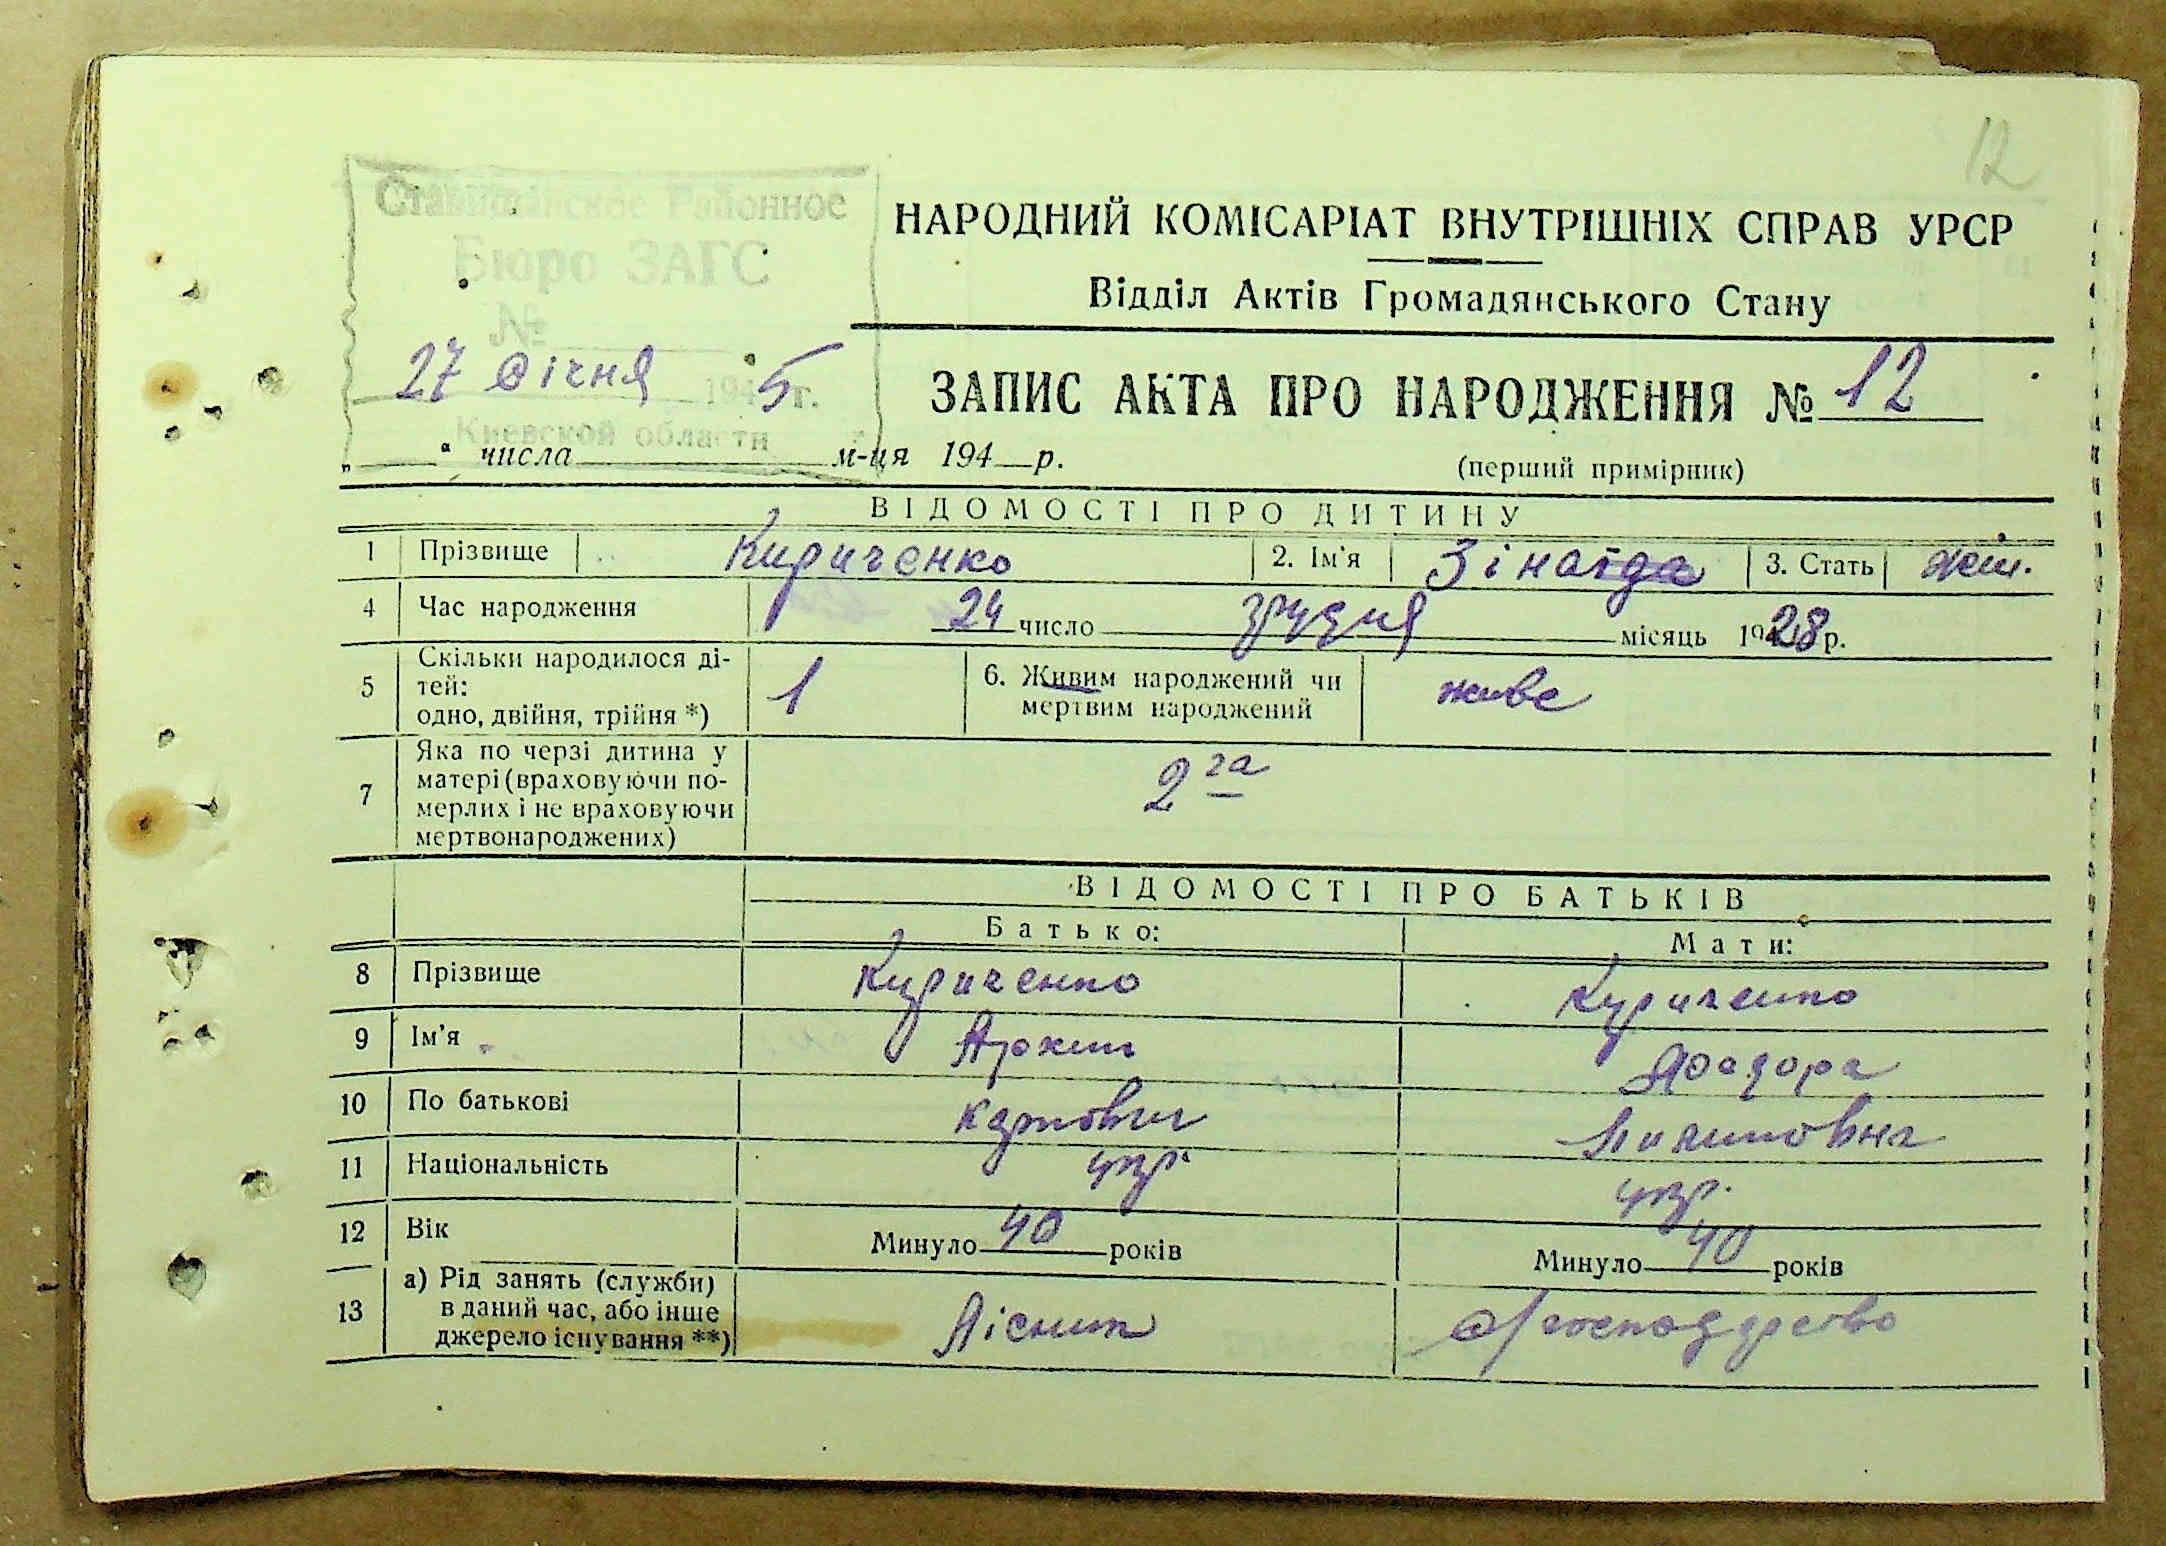 12
Ставищанское Районное
Бюро ЗАГС
№
27 січня 1945 г.
Киевской области
НАРОДНИЙ КОМІСАРІАТ ВНУТРІШНІХ СПРАВ УРСР
Відділ Актів Громадянського Стану
ЗАПИС АКТА ПРО НАРОДЖЕННЯ № 12
„ “ числа м-ця 194 р.
(перший примірник)
ВІДОМОСТІ ПРО ДИТИНУ
1 Прізвище Кириченко 2. Ім'я Зінаїда 3. Стать жін.
4 Час народження 24 число грудня місяць 1928 р.
5 Скільки народилося ді-
тей:
одно, двійня, трійня *) 1
6. Живим народжений чи
мертвим народжений живе
7 Яка по черзі дитина у
матері (враховуючи по-
мерлих і не враховуючи
мертвонароджених) 2га
ВІДОМОСТІ ПРО БАТЬКІВ
Батько: Мати:
8 Прізвище Кириченко Кириченко
9 Ім'я Архип Федора
10 По батькові Карпович Пилиповна
11 Національність укр. укр.
12 Вік Минуло 40 років Минуло 40 років
13 а) Рід занять (служби)
в даний час, або інше
джерело існування **) Лісник д/господарство